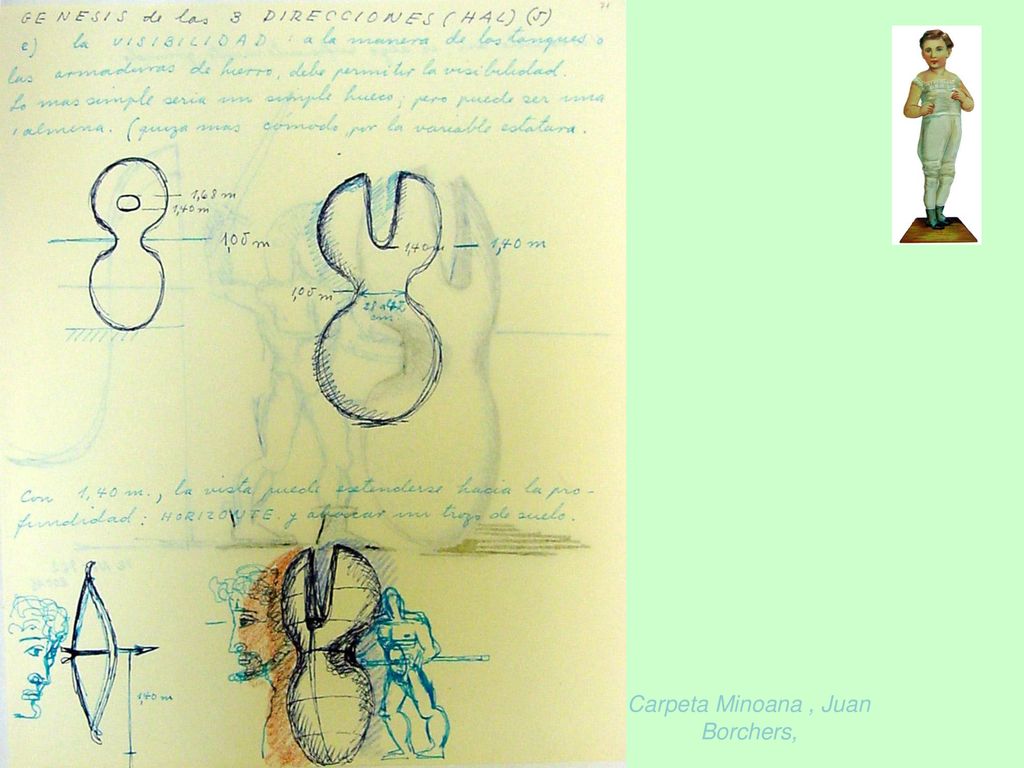 71
GENESIS de las 3 DIRECCIONES (HAL) (5)
e) la VISIBILIDAD: a la manera de los tanques o
las armaduras de hierro, debe permitir la visibilidad.
Lo mas simple seria un simple hueco; pero puede ser una
almena. (quiza mas cómodo, por la variable estatura.
1,68 m
1,40 m
1,05 m
1,40 m
1,40 m
1,05 m
cm.
Con 1,40 m., la vista puede extenderse hacia la pro-
fundidad: HORIZONTE. y abarcar un trozo de suelo.
1,40 m
Carpeta Minoana , Juan
Borchers,